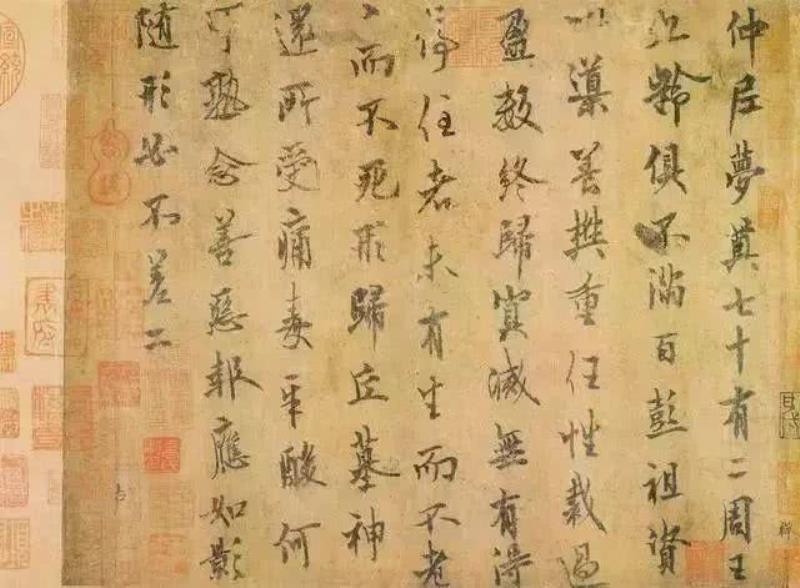 仲尼夢奠七十有二周王
九齡俱不滿百彭祖資
以導養樊重任性裁過
盈數終歸冥滅無有得
停住者未有生而不老
而不死形歸丘墓神
還所受痛毒辛酸何
可熟念善惡報應如影
随形必不差二